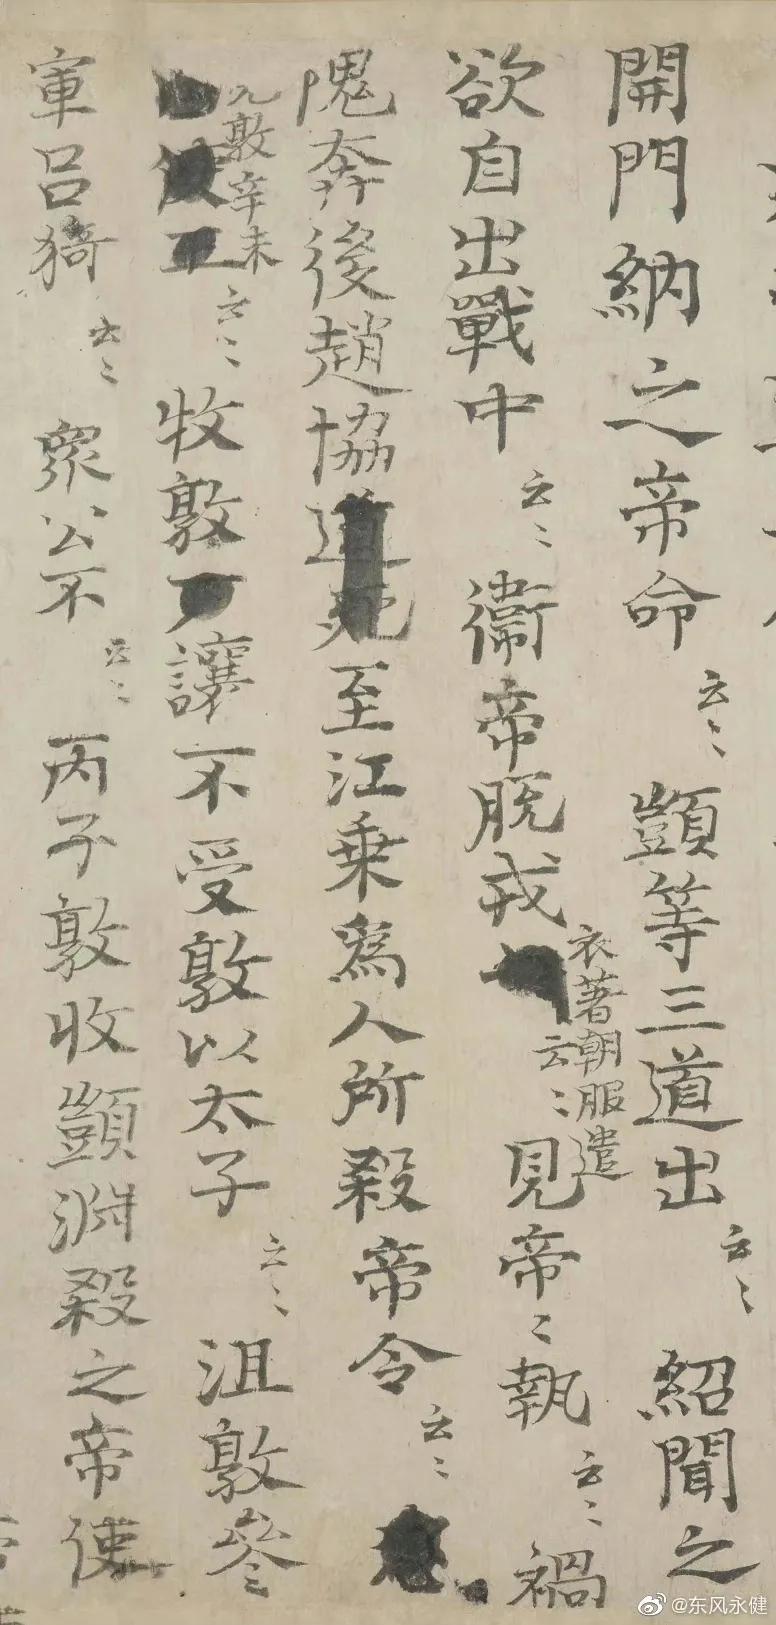 開門納之帝命云〻顗等三道出云〻紹聞之
欲自出戰中云〻衛帝脫戎衣著朝服遣云〻見帝〻執云〻禍
隗奔後趙協道死至江乗為人所殺帝令云〻
九敦辛未云〻牧敦讓不受敦以太子云〻沮敦參
軍吕猗云〻眾公不云〻丙子敦收顗淵殺之帝使
@东风永健